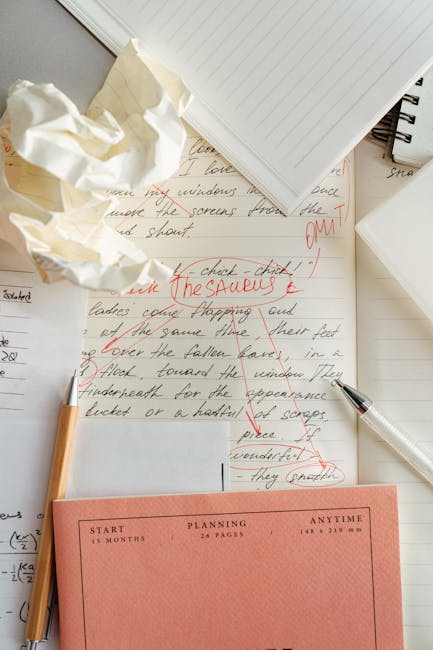 I love
my windows in
move the screens from the
and shout.
OMIT
- chick - chick!"
THESAURUS
ladies come flapping and
at the same time, their feet
over the fallen leaves, in a
flock, toward the window. They
underneath for the appearance
bucket or a handful of scraps,
piece. If
wonderful -
- they snatch
isolated
START
15 MONTHS
PLANNING
26 PAGES
ANYTIME
148 x 210 mm